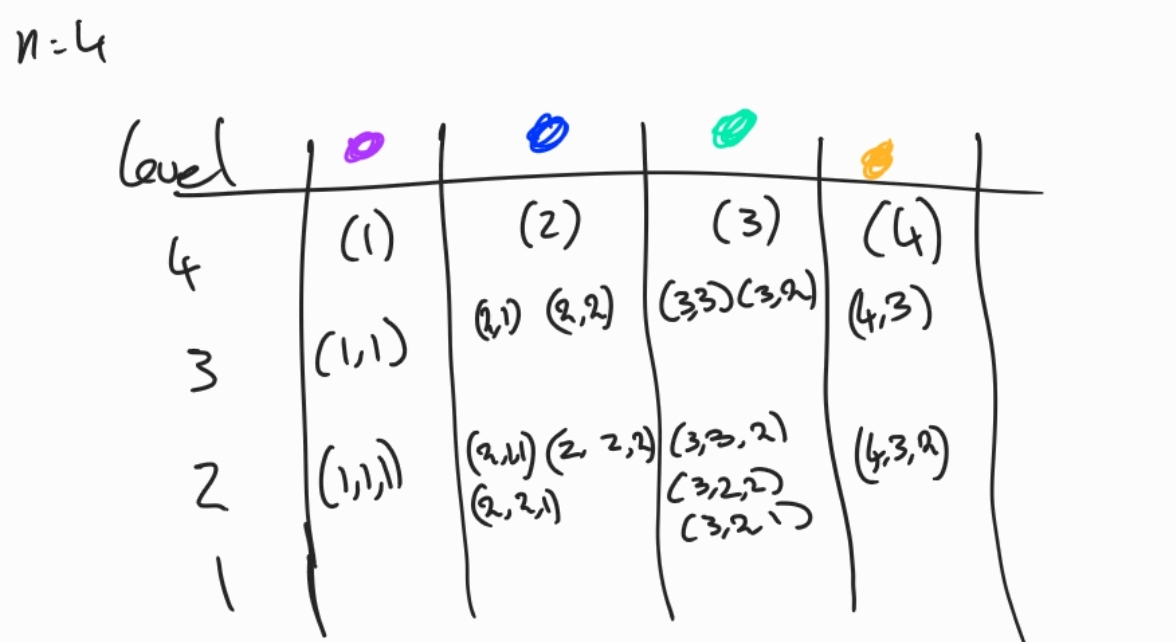 n=4
level
4 (1) (2) (3) (4)
3 (1,1) (2,1) (2,2) (3,3) (3,2) (4,3)
2 (1,1,1) (2,1,1) (2,2,2) (3,3,2) (4,3,2)
(2,2,1) (3,2,2)
(3,2 1)
1